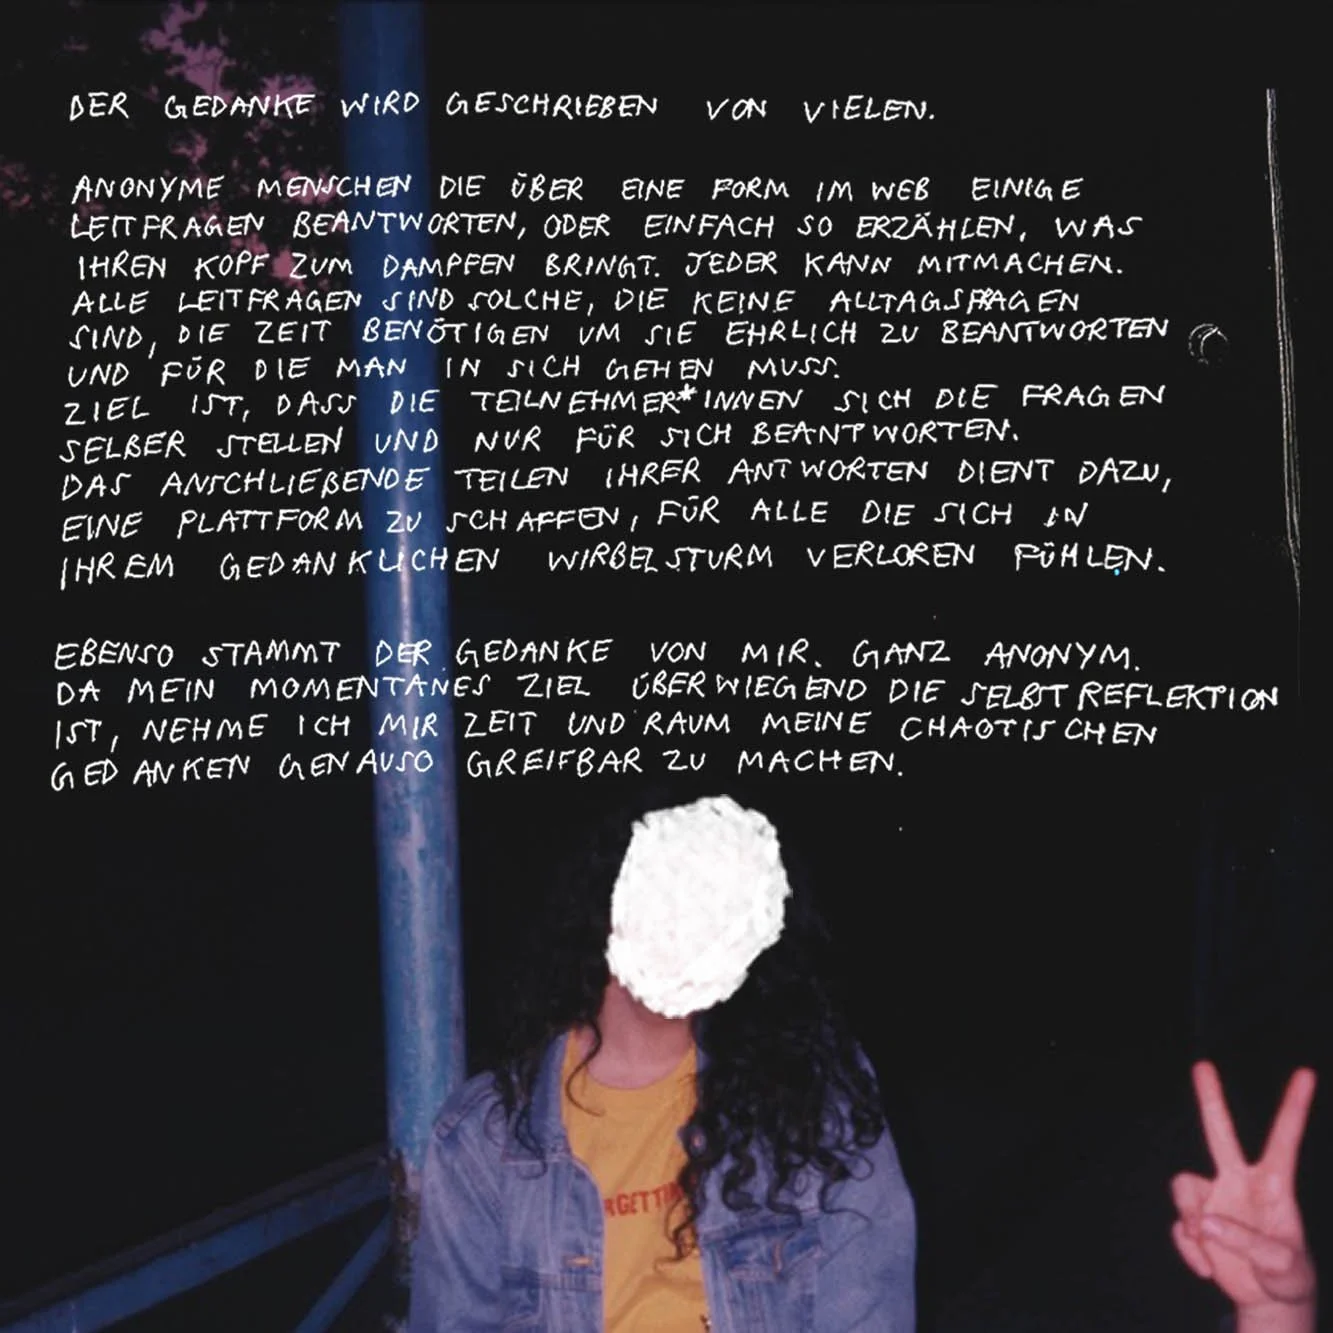 DER GEDANKE WIRD GESCHRIEBEN VON VIELEN.
ANONYME MENSCHEN DIE ÜBER EINE FORM IM WEB EINIGE
LEITFRAGEN BEANTWORTEN, ODER EINFACH SO ERZÄHLEN, WAS
IHREN KOPF ZUM DAMPFEN BRINGT. JEDER KANN MITMACHEN.
ALLE LEITFRAGEN SIND SOLCHE, DIE KEINE ALLTAGSFRAGEN
SIND, DIE ZEIT BENÖTIGEN UM SIE EHRLICH ZU BEANTWORTEN
UND FÜR DIE MAN IN SICH GEHEN MUSS.
ZIEL IST, DASS DIE TEILNEHMER*INNEN SICH DIE FRAGEN
SELBER STELLEN UND NUR FÜR SICH BEANTWORTEN.
DAS ANSCHLIEßENDE TEILEN IHRER ANTWORTEN DIENT DAZU,
EINE PLATTFORM ZU SCHAFFEN, FÜR ALLE DIE SICH IN
IHREM GEDANKLICHEN WIRBELSTURM VERLOREN FÜHLEN.
EBENSO STAMMT DER GEDANKE VON MIR. GANZ ANONYM.
DA MEIN MOMENTANES ZIEL ÜBERWIEGEND DIE SELBSTREFLEKTION
IST, NEHME ICH MIR ZEIT UND RAUM MEINE CHAOTISCHEN
GEDANKEN GENAUSO GREIFBAR ZU MACHEN.